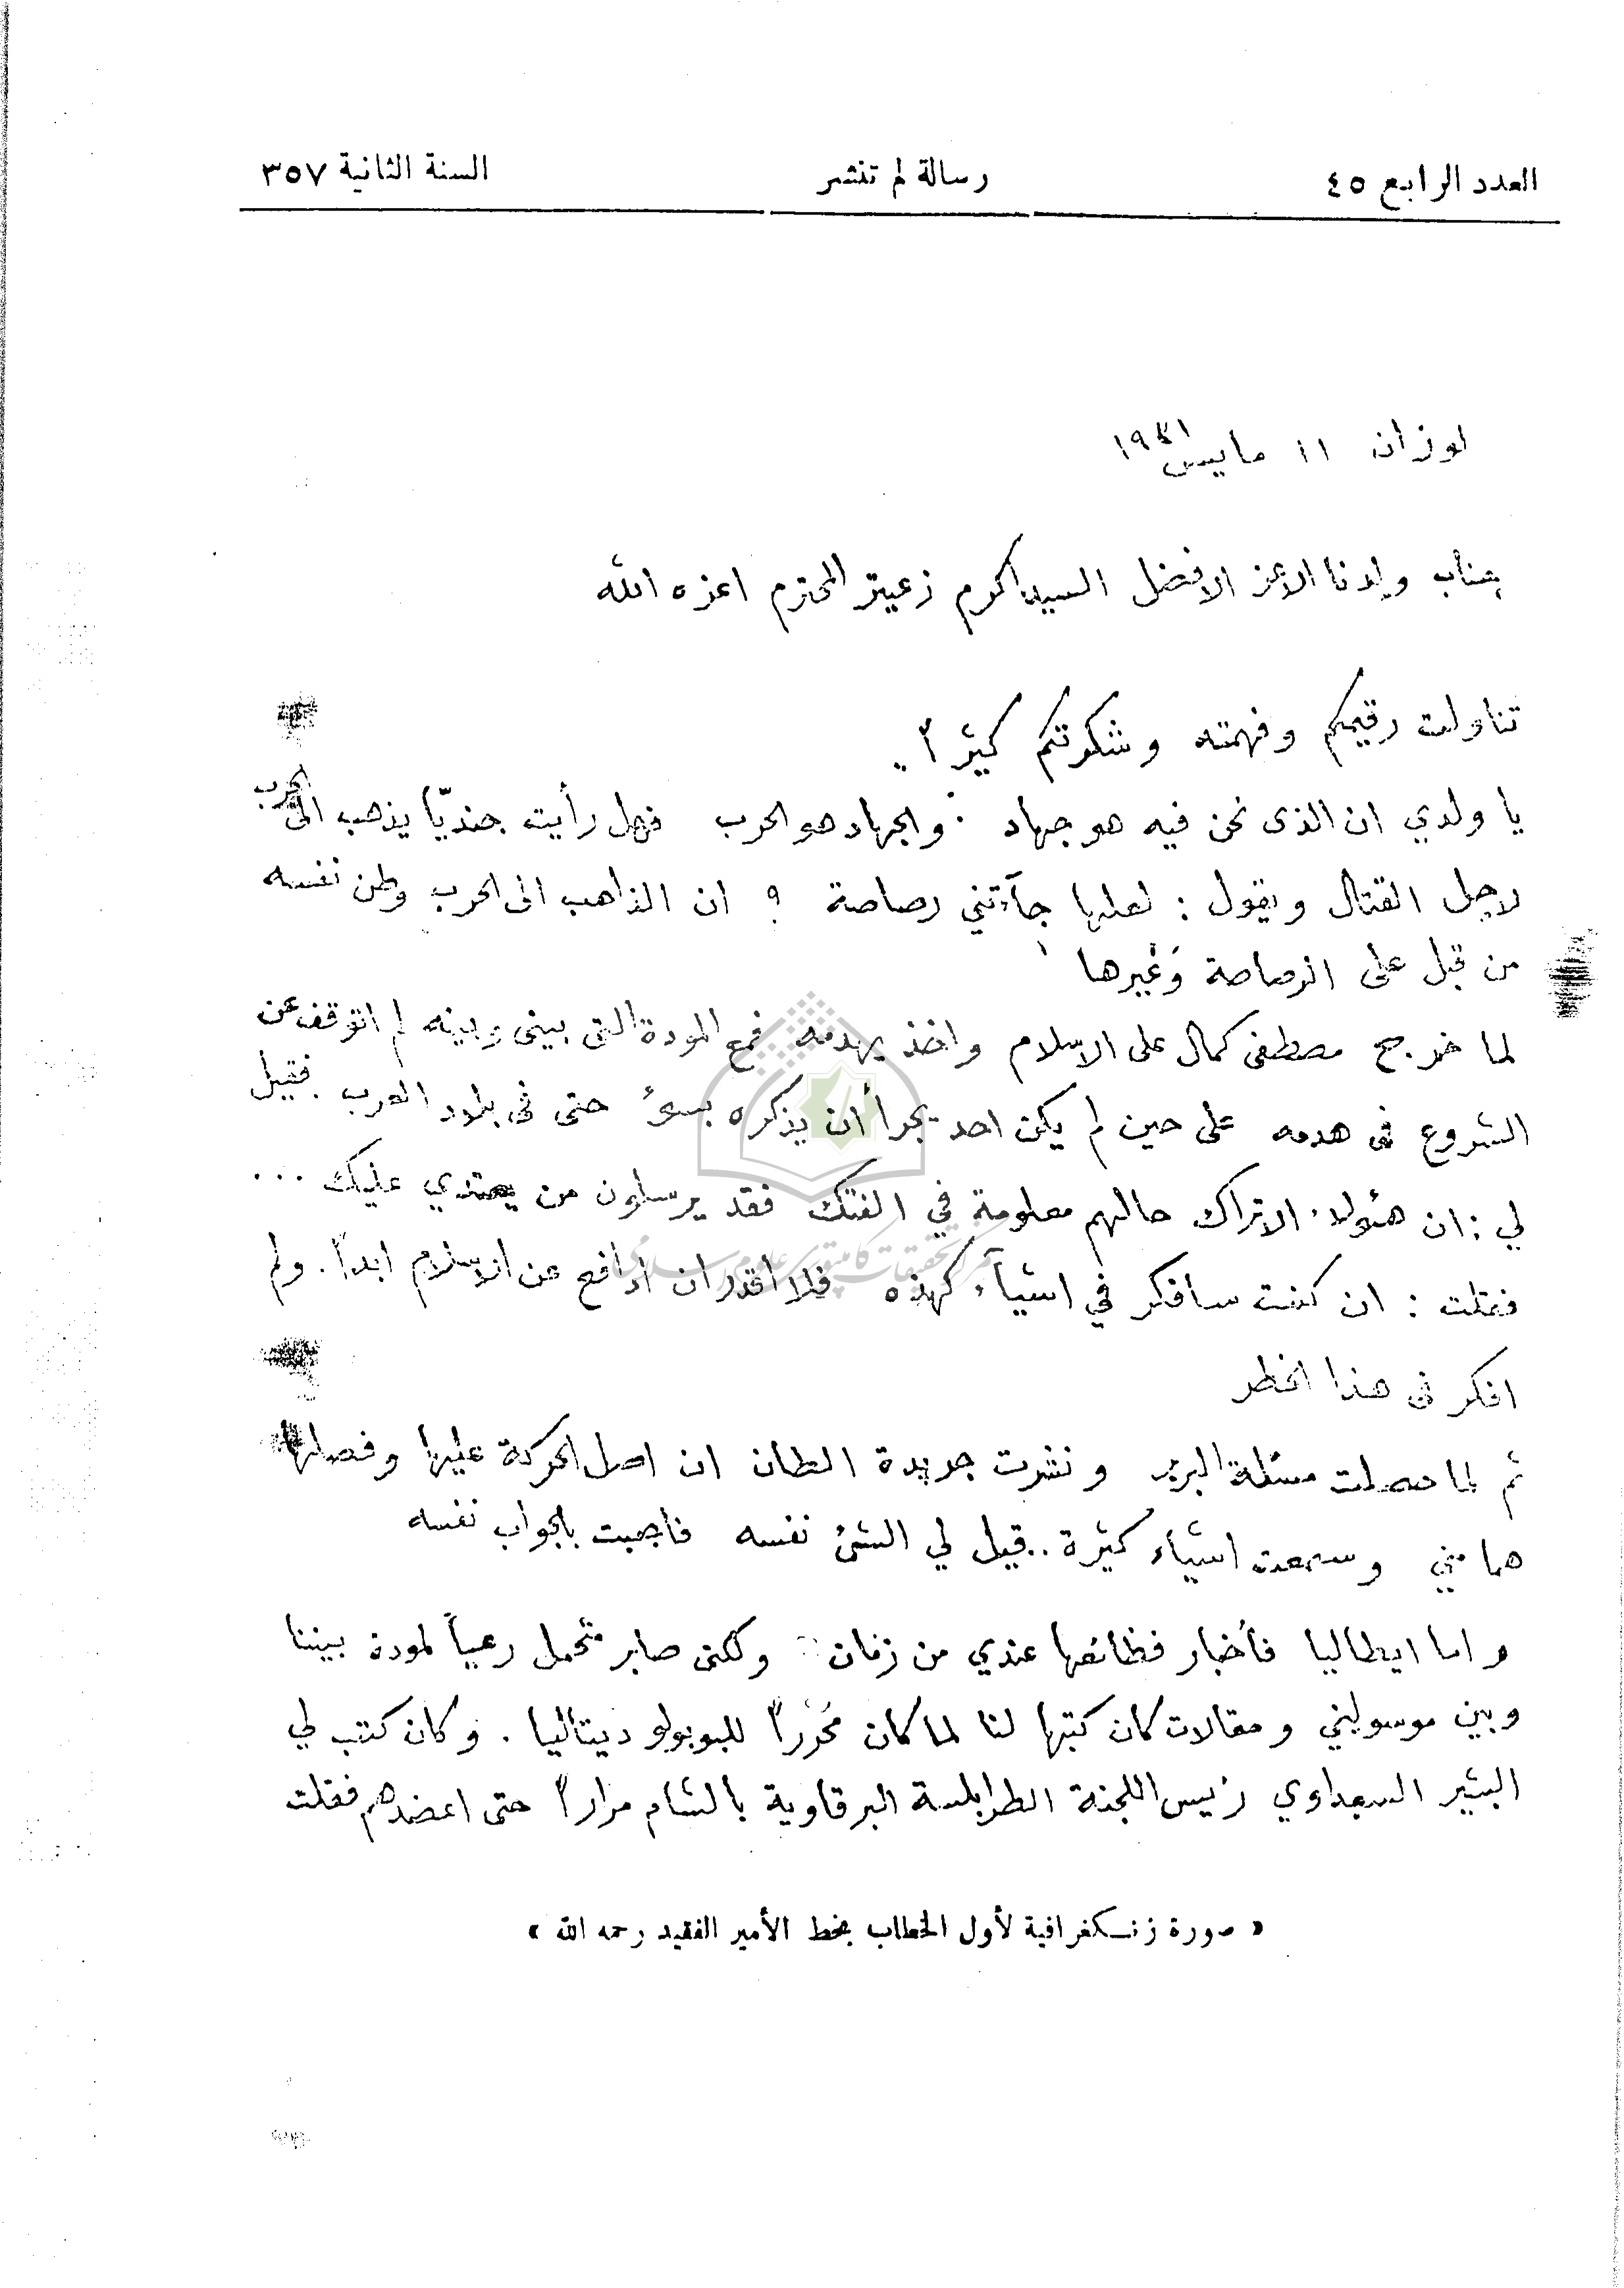 العدد الرابع ٤٥ رسالة لم تنشر السنة الثانية ٣٥٧
لوزان ١١ مايس ١٩٣١
جناب ولدنا الاعز الافضل السيد اكرم زعيتر المحترم اعزه الله
تناولت رقيمكم وفهمته وشكرتكم كثيراً .
يا ولدي ان الذى نحن فيه هو جهاد . والجهاد هو الحرب فهل رأيت جنديّا يذهب الى الحرب
لاجل القتال ويقول : لعلها جآءتني رصاصة ؟ ان الذاهب الى الحرب وطن نفسه
من قبل على الرصاصة وغيرها
لما خرج مصطفى كمال على الاسلام واخذ يهدمه فمع المودة التى بينى وبينه لم اتوقف عن
الشروع فى هدمه على حين لم يكن احد يجرأ أن يذكره بسوء حتى فى بلاد العرب . فقيل
لي : ان هئولاء الاتراك حالهم معلومة في الفتك فقد يرسلون من يعتدي عليك ...
فقلت : ان كنت سافكر في اشيآء كهذه فلا اقدر ان ادافع عن الاسلام ابداً . ولم
افكر فى هذا الخطر
ثم لما حصلت مسئلة البربر ونشرت جريدة الطان ان اصل الحركة عليها وفصلها
هما مني وسمعت اشيآء كثيرة .. قيل لي الشئ نفسه فاجبت بالجواب نفسه
واما ايطاليا فأخبار فظائعها عندي من زمان ولكنى صابر متحمل رعياً لمودة بيننا
وبين موسوليني ومقالات كان كتبها لنا لما كان محرّراً للبوبولو ديتاليا . وكان كتب لي
البشير السعداوي رئيس اللجنة الطرابلسة البرقاوية بالشام مراراً حتى اعضدهم فقلت
« صورة زنسكغرافية لأول الخطاب بخط الأمير الفقيد رحمه الله »
مركز تحقيقات كامپيوتري علوم اسلامي